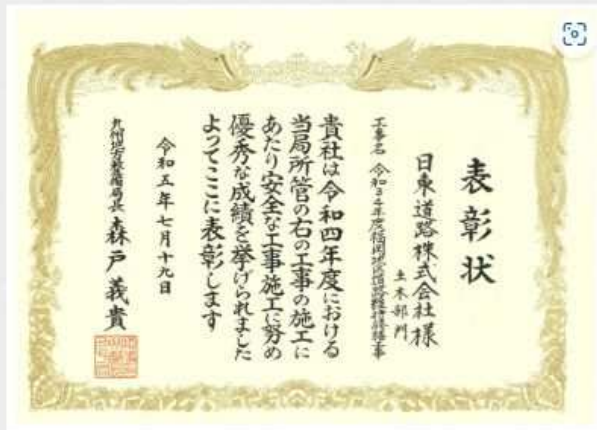 表彰状
日東道路株式会社様
土木部門
工事名 令和3・4年度福岡地区道路維持修繕工事
貴社は令和四年度における
当局所管の右の工事の施工に
あたり安全な工事施工に努め
優秀な成績を挙げられました
よってここに表彰します
令和五年七月十九日
九州地方整備局長 森戸義貴